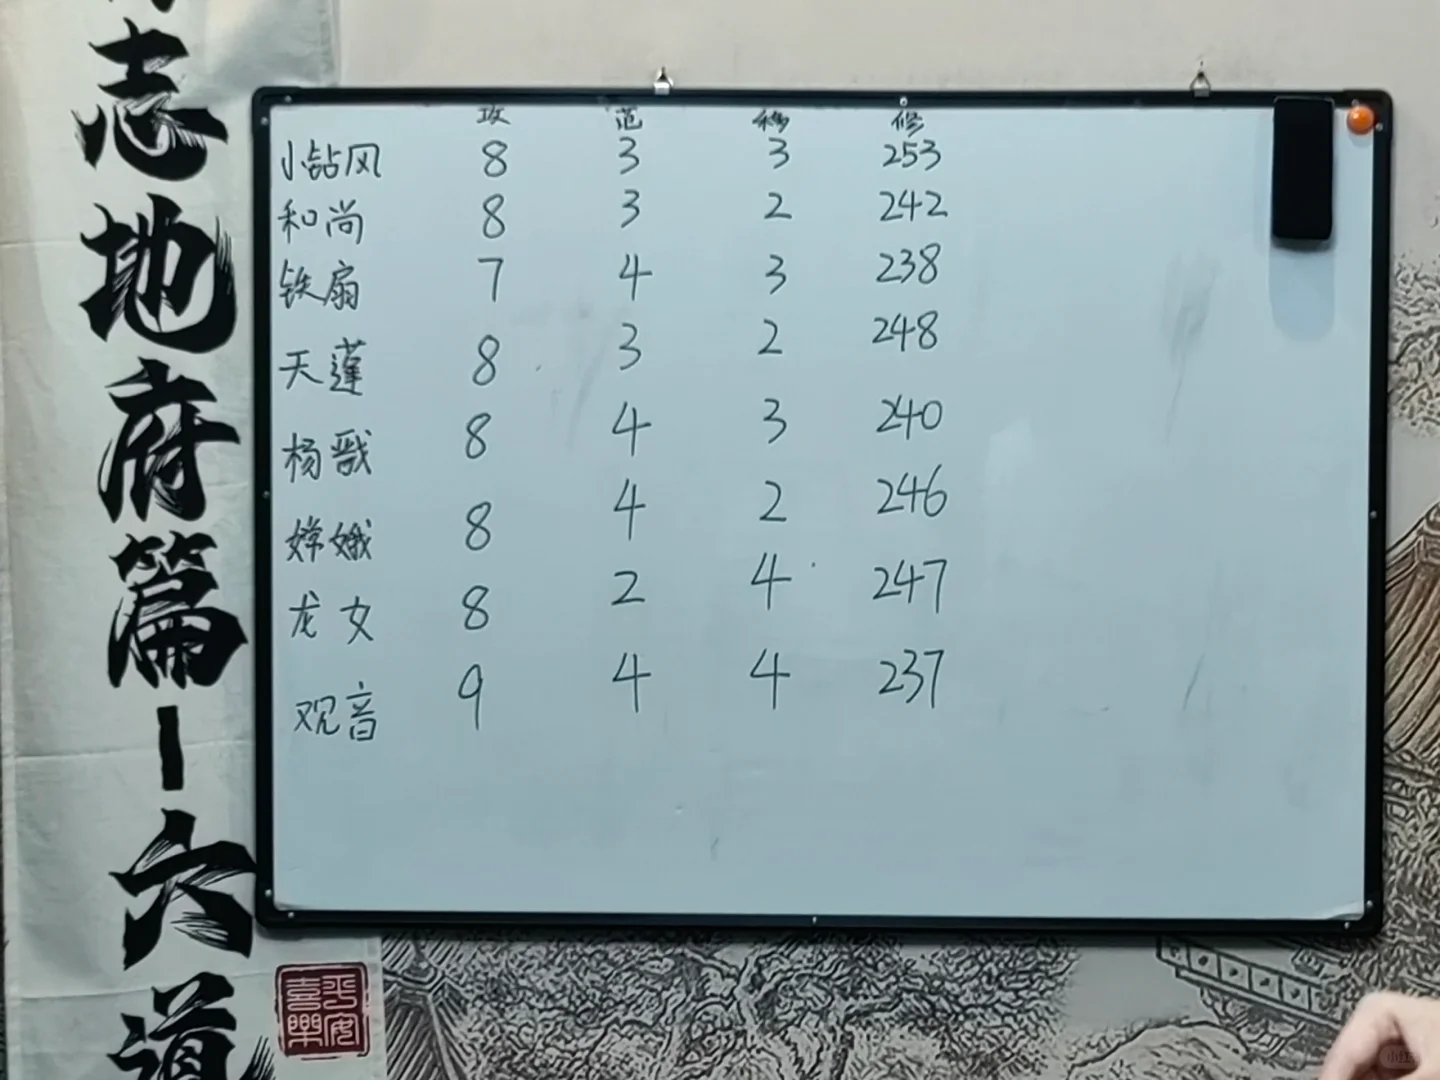 志地府篇－六道
攻 范 移 修
小钻风 8 3 3 253
和尚 8 3 2 242
铁扇 7 4 3 238
天蓬 8 3 2 248
杨戬 8 4 3 240
嫦娥 8 4 2 246
龙女 8 2 4 247
观音 9 4 4 237
平安
喜樂